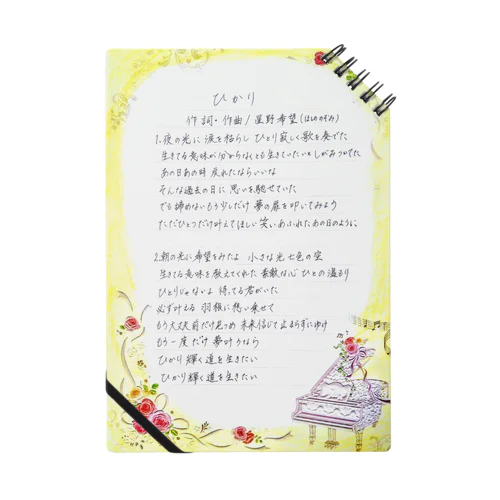 ひかり
作詞・作曲/星野希望(ほしののぞみ)
1.夜の光に 涙を枯らし ひとり寂しく歌を奏でた
生きてる意味が分からなくとも生きていたいとしがみつかてた
あの日あの時 戻れたならいいな
そんな過去の日に 思いを馳せていた
でも諦めないもう少しだけ 夢の扉を叩いてみよう
ただひとつだけ叶えてほしい 笑いあふれたあの日のように
2.朝の光に希望をみたよ 小さな光七色の空
生きてる意味を教えてくれた 素敵な心 ひとの温もり
ひとりじゃないよ 待ってる君がいた
必ず叶える 羽根に想い乗せて
もう大丈夫 前だけ見つめ 未来信じて止まらずにゆけ
もう一度だけ 夢叶うなら
ひかり輝く道を生きたい
ひかり輝く道を生きたい